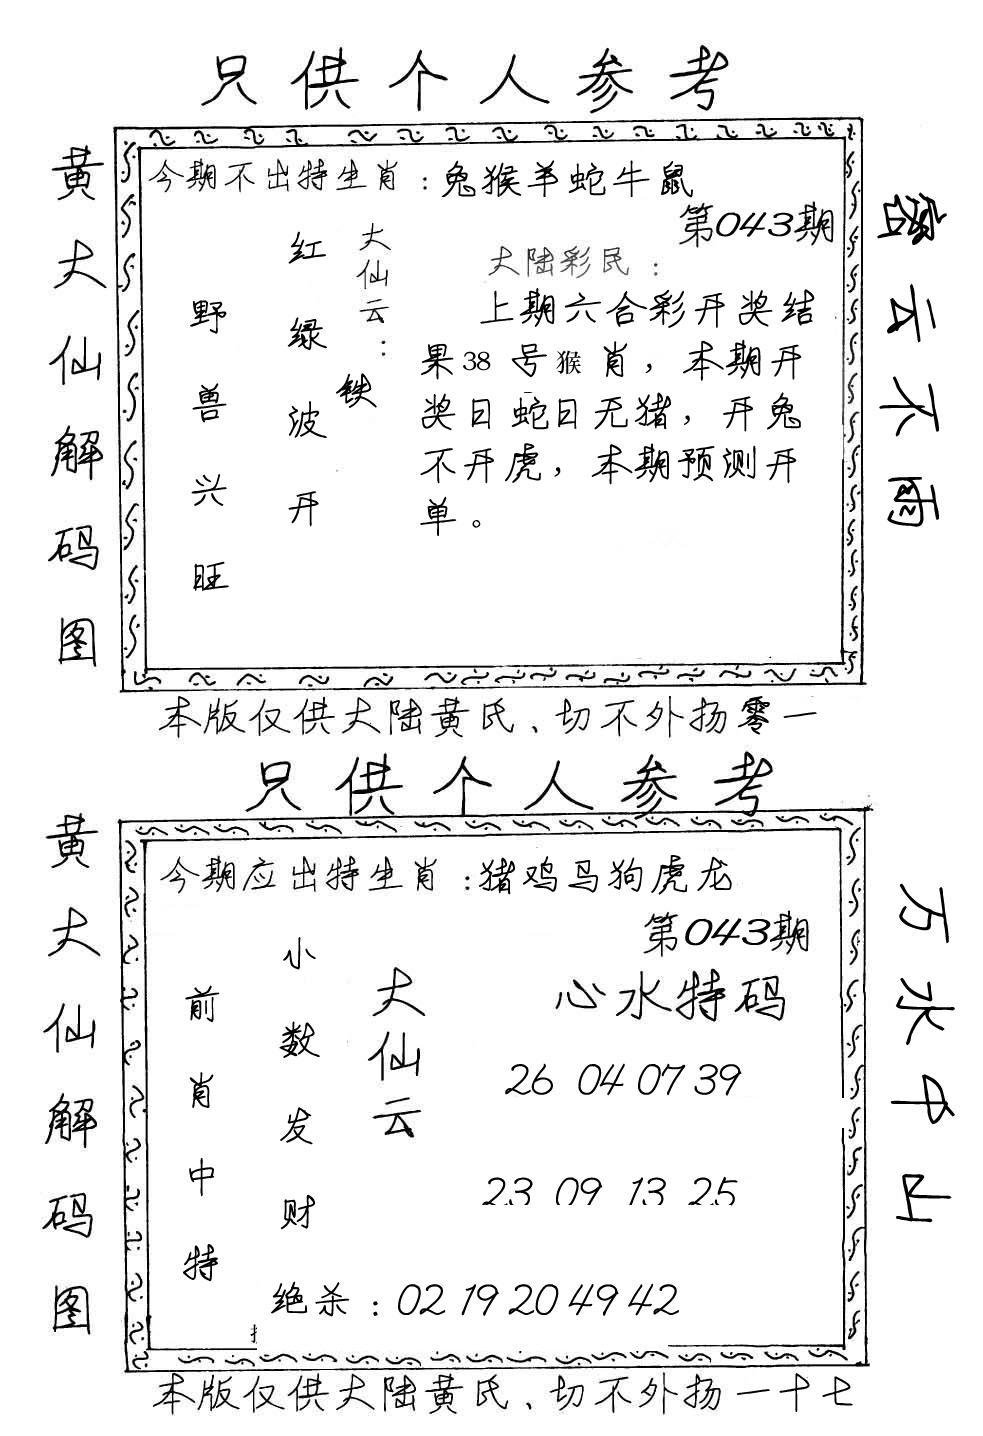 只供个人参考
黄大仙解码图
今期不出特生肖：兔猴羊蛇牛鼠
第043期
大仙云：
红绿波开
铁
野兽兴旺
大陆彩民：
上期六合彩开奖结
果38号猴肖，本期开
奖日蛇日无猪，开兔
不开虎，本期预测开
单。
密云不雨
本版仅供大陆黄氏、切不外扬零一
只供个人参考
黄大仙解码图
今期应出特生肖：猪鸡马狗虎龙
第043期
大仙云
小数发财
前肖中特
心水特码
26 04 07 39
23 09 13 25
绝杀：02 19 20 49 42
万水中山
本版仅供大陆黄氏、切不外扬一十七